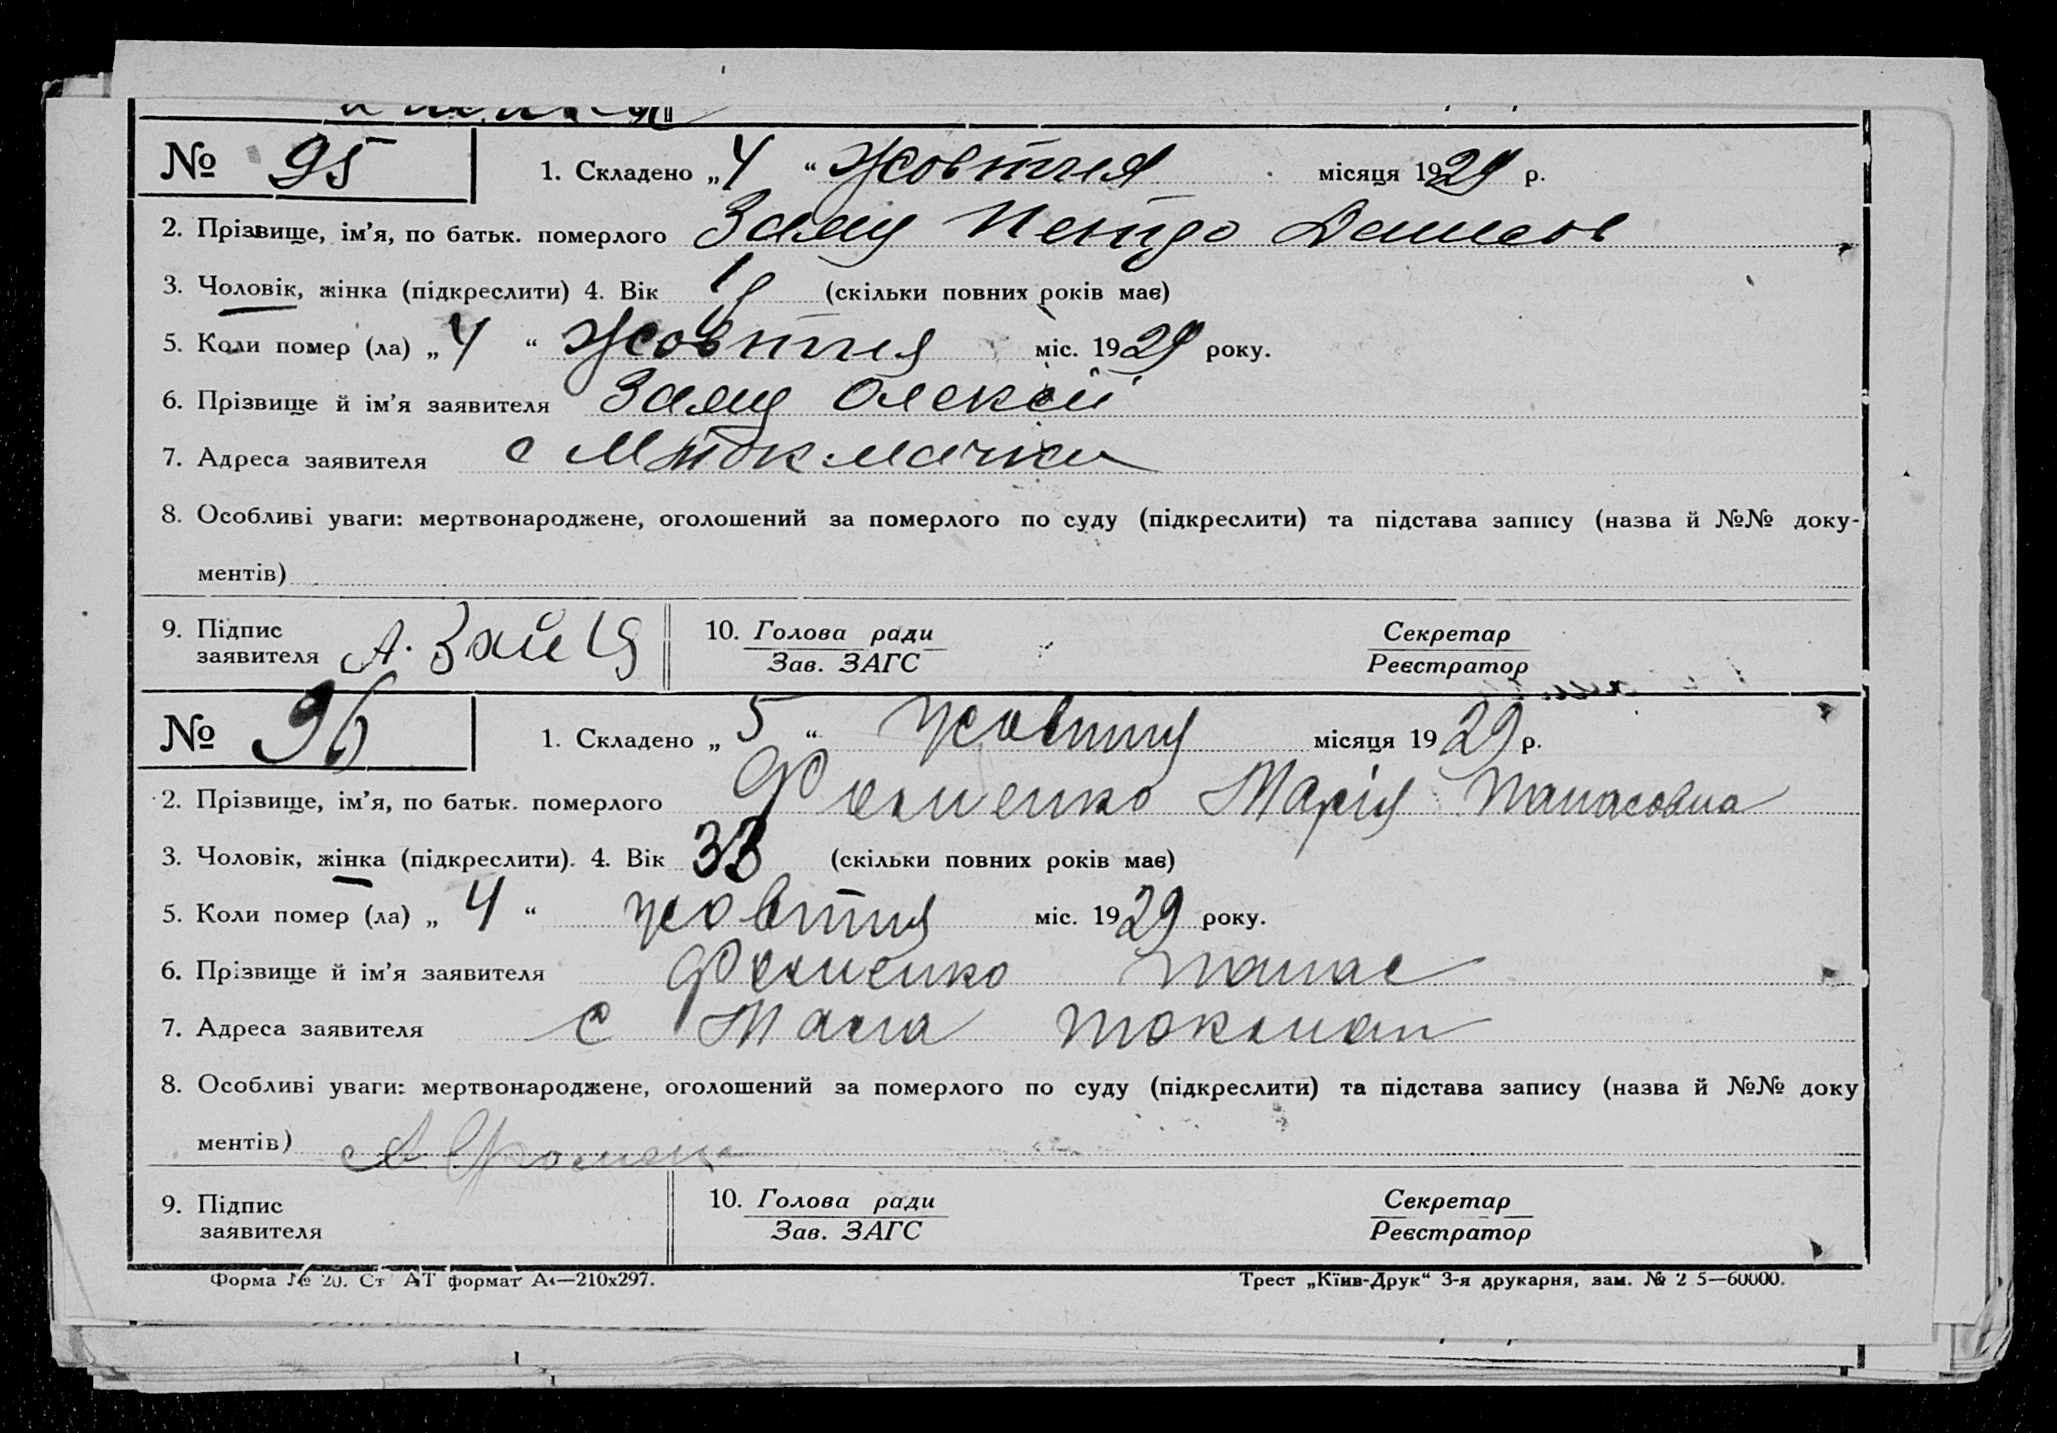 № 95 1. Складено „4“ Жовтня місяця 1929 р.
2. Прізвище, ім’я, по батьк. померлого Заяц Петро
3. Чоловік, жінка (підкреслити) 4. Вік (скільки повних років має)
5. Коли помер (ла) „4“ Жовтня міс. 1929 року.
6. Прізвище й ім’я заявителя Заяц Олексій
7. Адреса заявителя с М Токмачка
8. Особливі уваги: мертвонароджене, оголошений за померлого по суду (підкреслити) та підстава запису (назва й №№ доку-
ментів)
9. Підпис заявителя А. Зайця 10. Голова ради Секретар
Зав. ЗАГС Реєстратор
№ 96 1. Складено „5“ жовтня місяця 1929 р.
2. Прізвище, ім’я, по батьк. померлого Марія Панасовна
3. Чоловік, жінка (підкреслити). 4. Вік 33 (скільки повних років має)
5. Коли помер (ла) „4“ жовтня міс. 1929 року.
6. Прізвище й ім’я заявителя Панас
7. Адреса заявителя с Мала
8. Особливі уваги: мертвонароджене, оголошений за померлого по суду (підкреслити) та підстава запису (назва й №№ доку
ментів)
9. Підпис заявителя 10. Голова ради Секретар
Зав. ЗАГС Реєстратор
Форма № 20. Ст АТ формат А4—210х297. Трест „Київ-Друк“ 3-я друкарня, зам. № 2 5—60000.